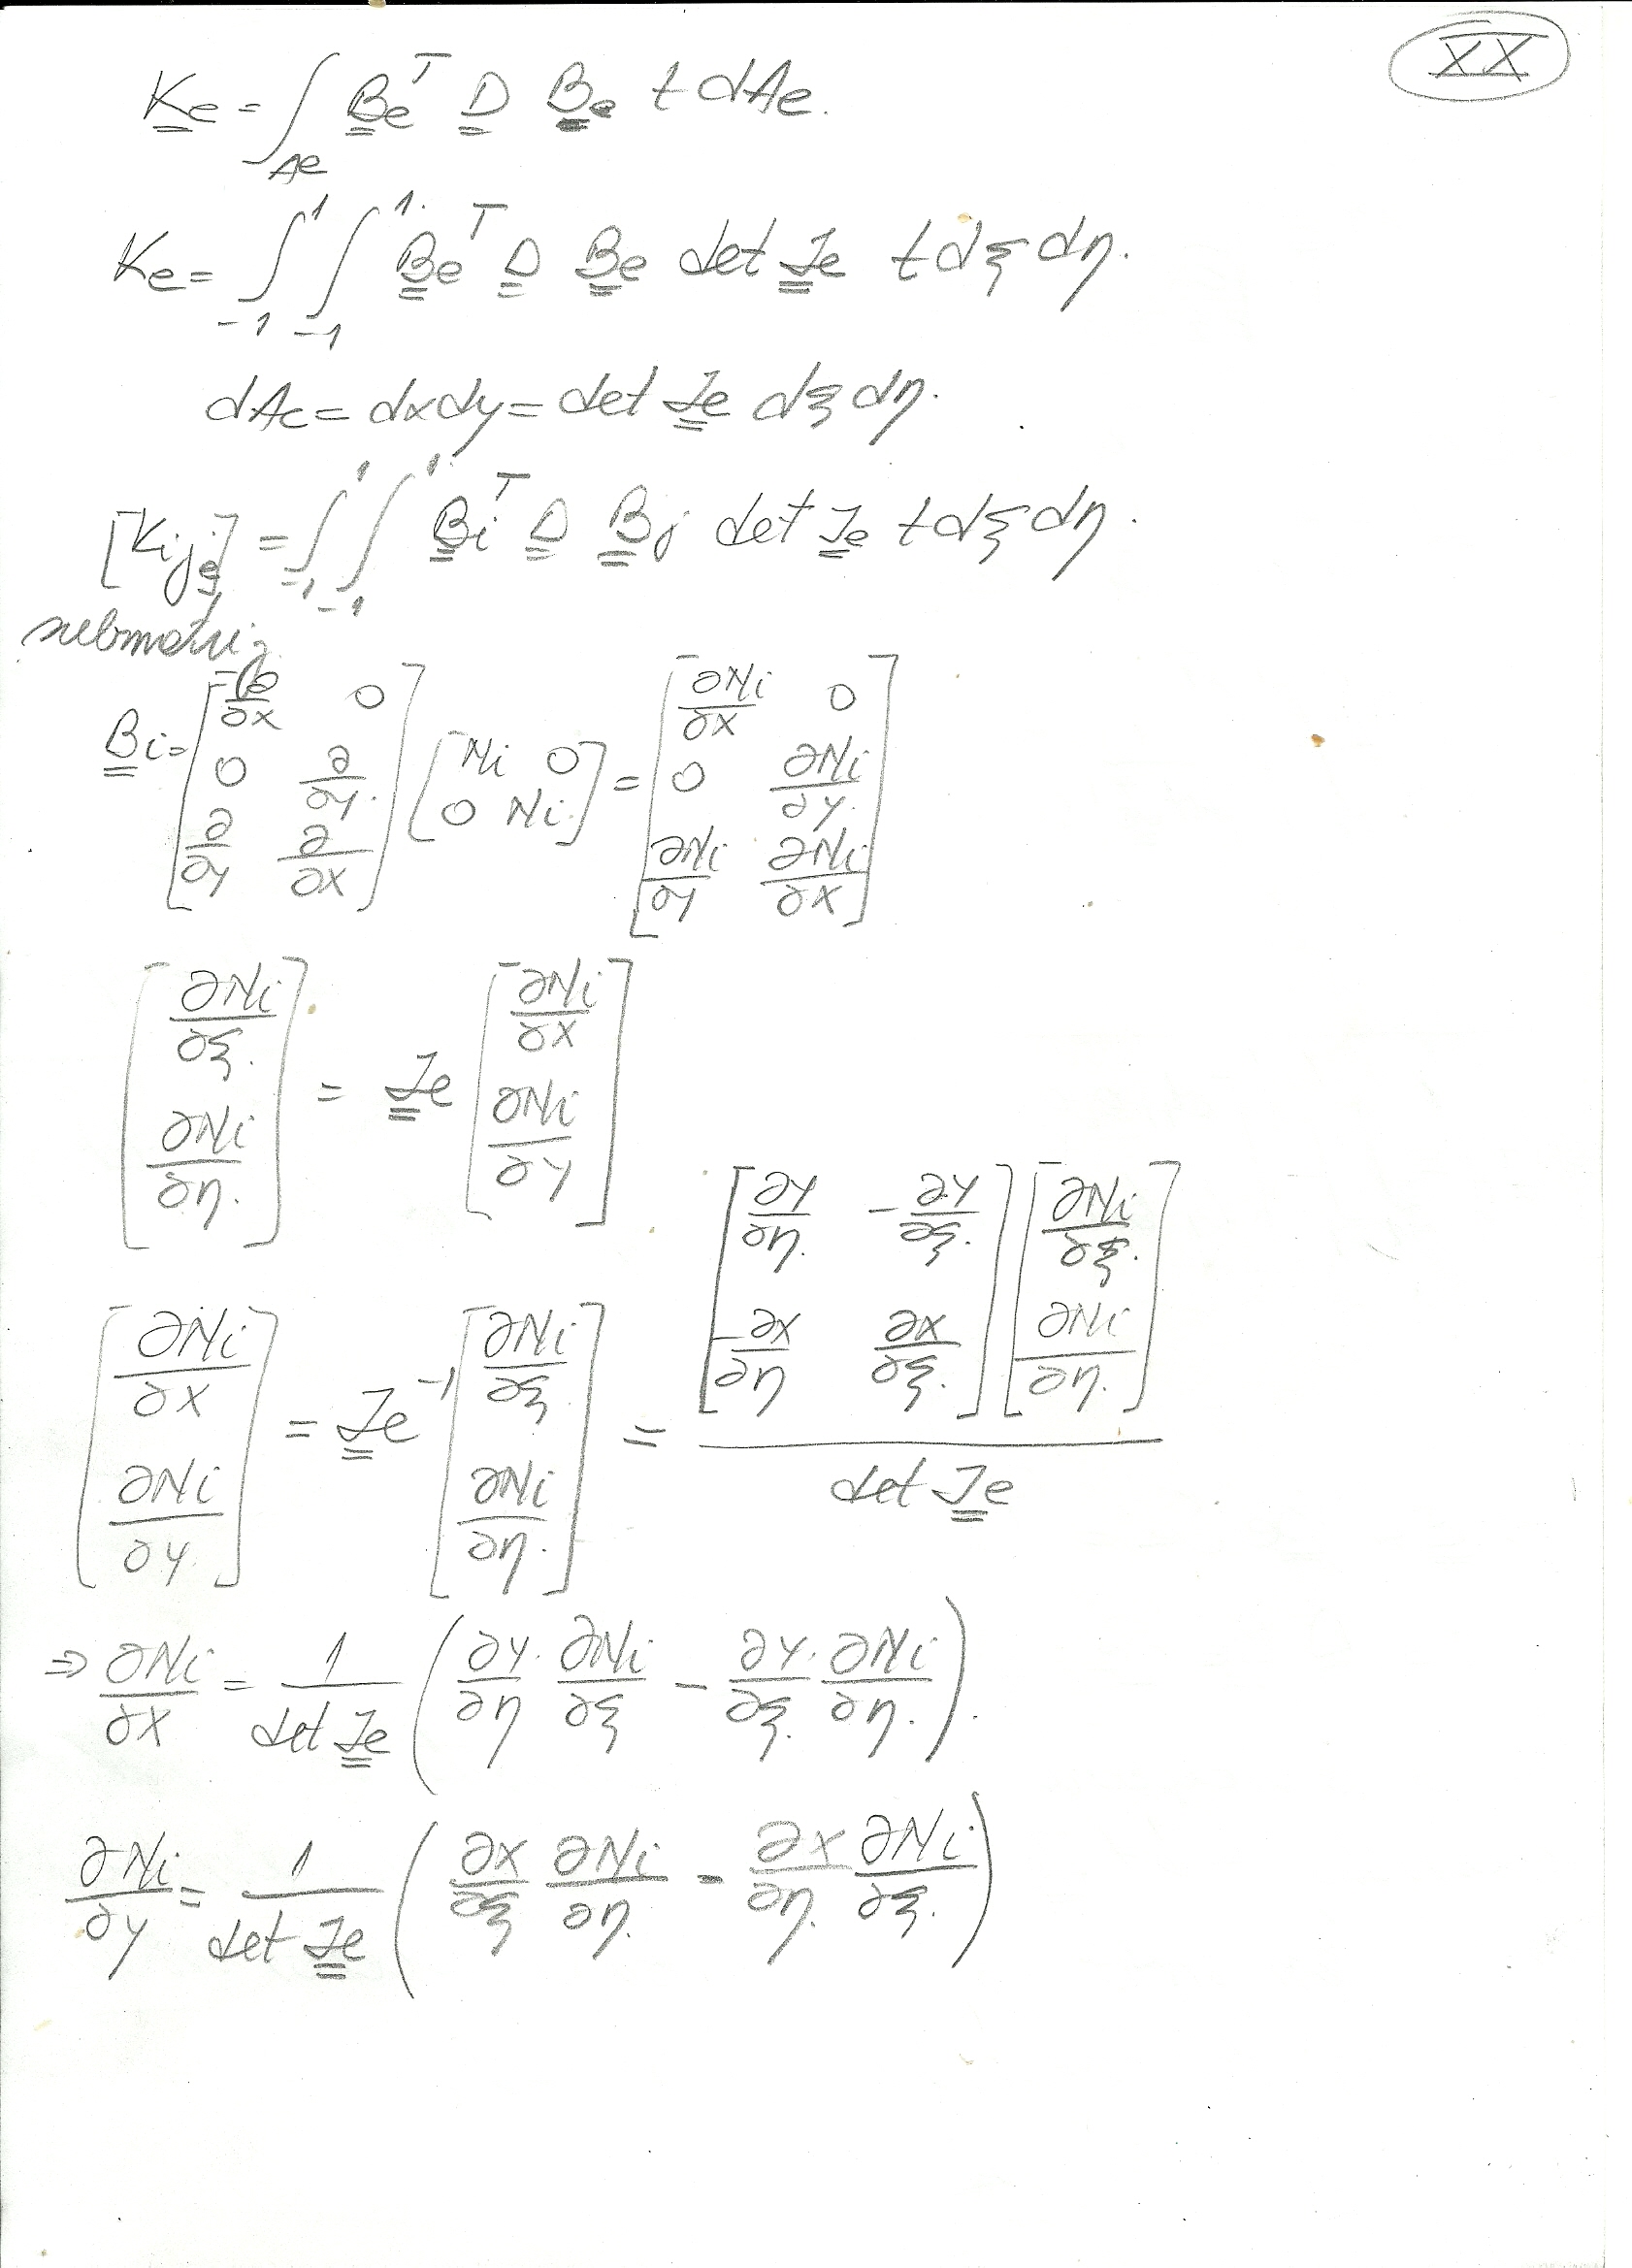 XX
K̲e = ∫_Ae B̲e^T D̲ B̲e t dAe.
Ke = ∫_-1^1 ∫_-1^1 B̲e^T D̲ B̲e det J̲e t dξ dη.
dAe = dxdy = det J̲e dξ dη.
[Kije] = ∫_-1^1 ∫_-1^1 B̲i^T D̲ B̲j det J̲e t dξ dη.
submatriz
B̲i = [∂/∂x 0; 0 ∂/∂y; ∂/∂y ∂/∂x] [Ni 0; 0 Ni] = [∂Ni/∂x 0; 0 ∂Ni/∂y; ∂Ni/∂y ∂Ni/∂x]
[∂Ni/∂ξ; ∂Ni/∂η] = J̲e [∂Ni/∂x; ∂Ni/∂y]
[∂Ni/∂x; ∂Ni/∂y] = J̲e^-1 [∂Ni/∂ξ; ∂Ni/∂η] = [∂y/∂η -∂y/∂ξ; -∂x/∂η ∂x/∂ξ] [∂Ni/∂ξ; ∂Ni/∂η] / det J̲e
⇒ ∂Ni/∂x = 1/det J̲e (∂y/∂η ∂Ni/∂ξ - ∂y/∂ξ ∂Ni/∂η).
∂Ni/∂y = 1/det J̲e (∂x/∂ξ ∂Ni/∂η - ∂x/∂η ∂Ni/∂ξ)